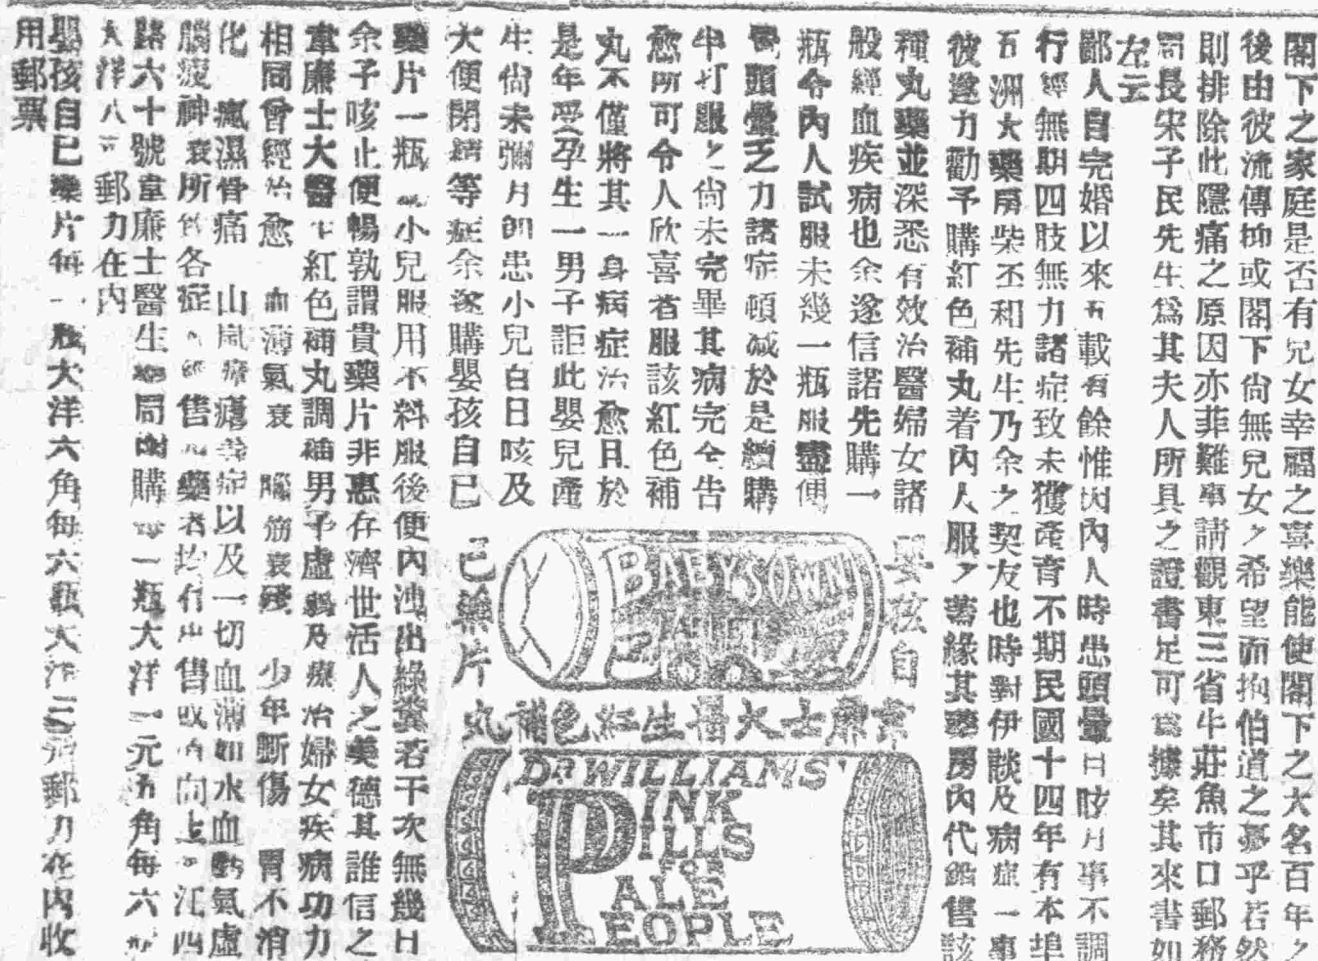 閣下之家庭是否有兒女幸福之喜樂能使閣下之大名百年之
後由彼流傳抑或閣下尙無兒女之希望而抱伯道之憂乎若然
則排除此隱痛之原因亦菲難事請觀東三省牛莊魚市口郵務
局長宋子民先生爲其夫人所具之證書足可爲據矣其來書如
左云
鄙人自完婚以來五載有餘惟因內人時患頭暈目眩月事不調
行經無期四肢無力諸症致未獲產育不期民國十四年有本埠
五洲大藥房柴丕和先生乃余之契友也時對伊談及病症一事
彼遂力勸予購紅色補丸着內人服之蓋緣其藥房內代銷售該
種丸藥並深悉有效治醫婦女諸
般經血疾病也余遂信諾先購一
瓶令內人試服未幾一瓶服盡便
覺頭暈乏力諸症頓減於是續購
半打服之尙未完畢其病完全告
愈所可令人欣喜者服該紅色補
丸不僅將其一身病症治愈且於
是年受孕生一男子詎此嬰兒產
生尙未彌月卽患小兒白日咳及
大便閉結等症余遂購嬰孩自己
藥片一瓶 小兒服用不料服後便內洩出綠糞若干次無幾日
余子咳止便暢孰謂貴藥片非惠存濟世活人之美德其誰信之
韋廉士大醫生紅色補丸調補男子虛弱及療治婦女疾病功力
相同曾經治愈 血薄氣衰 腦筋衰殘 少年斷傷 胃不消
化 瘋濕骨痛 山嵐瘴癘 症以及一切血薄如水血虧氣虛
腦疲神衰所致各症 售 藥者均有出售或直向上海江西
路六十號韋廉士醫生藥局函購每一瓶大洋一元五角每六瓶
大洋八元郵力在內
嬰孩自己藥片每一瓶大洋六角每六瓶大洋三元郵力在內收
用郵票
嬰孩自
BABY'S OWN
TABLETS
己藥片
韋廉士大醫生紅色補丸
DR WILLIAMS'
PINK
PILLS
FOR
PALE
PEOPLE